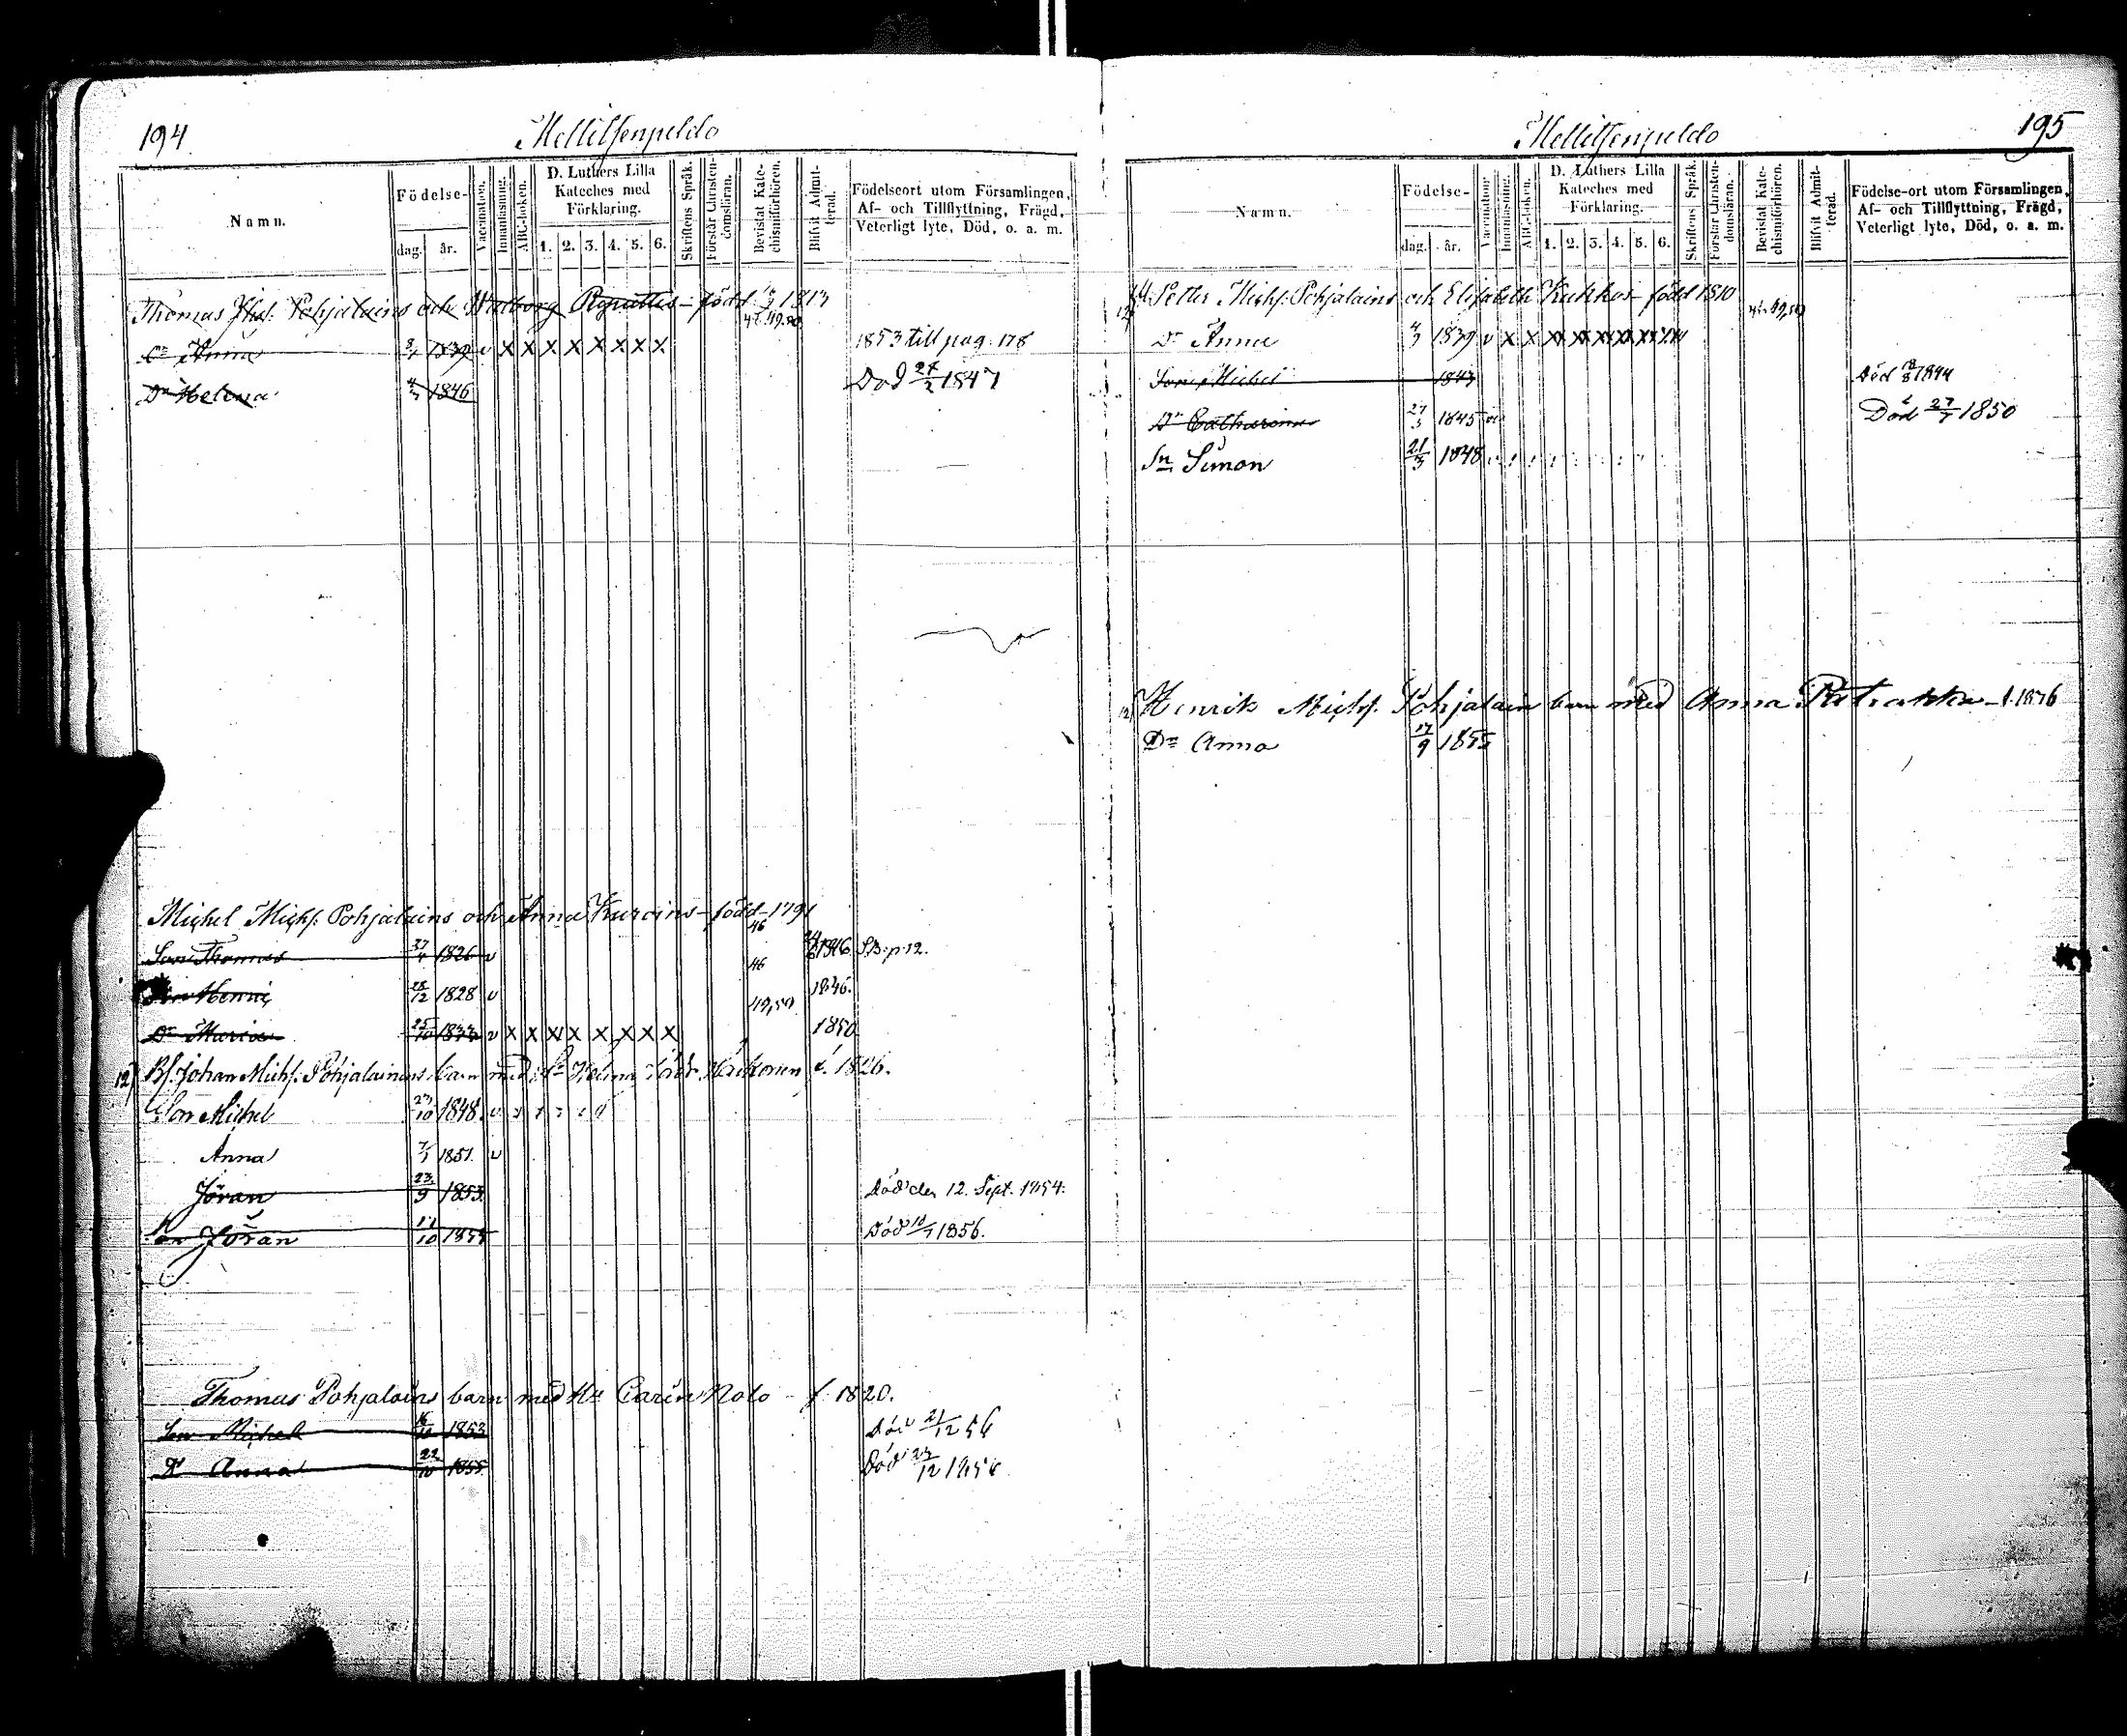 194
Mellitsenpeldo
Namn.
Födelse-
dag. år.
Vaccination.
Innanläsning.
ABC-boken.
D. Luthers Lilla
Kateches med
Förklaring.
1. 2. 3. 4. 5. 6.
Skriftens Språk.
Förstår Christendomsläran.
Bevistat Katechismiförhören.
Blifvit Admitterad.
Födelseort utom Församlingen,
Af- och Tillflyttning, Frägd,
Veterligt lyte, Död, o. a. m.
Thomas Pohjalains och Walborg född 1813
Dr Anna 1839 v x x x x x x x x 1853 till pag. 178
Dr Helena 4/7 1846 Död 27/2 1847
Michel Michs. Pohjalains och Anna Kuroins - född - 1791
46
Son Thomas 27/4 1826 v 46 1846 SB. p. 12.
Son Henric 28/12 1828 v 49,50 1846.
Dr Maria 25/10 v x x x x x x x x 1850
12) Bf. Johan Michs. Pohjalainens barn med Hu Helena f. 1826.
Son Michel 23/10 1848. v
Anna 7/1 1851. v
Jöran 23/9 1853. Död den 12. Sept. 1854.
Son Jöran 17/10 1855 Död 1856.
Thomas Pohjalains barn med Hu Carin Nolo - f. 1820.
Son Michel 1853 Död 21/12 56
Dr Anna 22/10 1855 Död 23/12 1856
195
Mellitsenpeldo
Namn.
Födelse-
dag. år.
Vaccination.
Innanläsning.
ABC-boken.
D. Luthers Lilla
Kateches med
Förklaring.
1. 2. 3. 4. 5. 6.
Skriftens Språk.
Förstår Christendomsläran.
Bevistat Katechismiförhören.
Blifvit Admitterad.
Födelse-ort utom Församlingen,
Af- och Tillflyttning, Frägd,
Veterligt lyte, Död, o. a. m.
Petter Michs. Pohjalains och Elisabeth Kukkos - född 1810
Dr Anna 4/3 1839 v
Son Michel 1843 Död 1844
Dr Catharina 27/3 1845 v Död 27/7 1850
Sn Simon 21/3 1848
12) Henrik Michs. Pohjalain barn med Anna
Dr Anna 17/9 1855